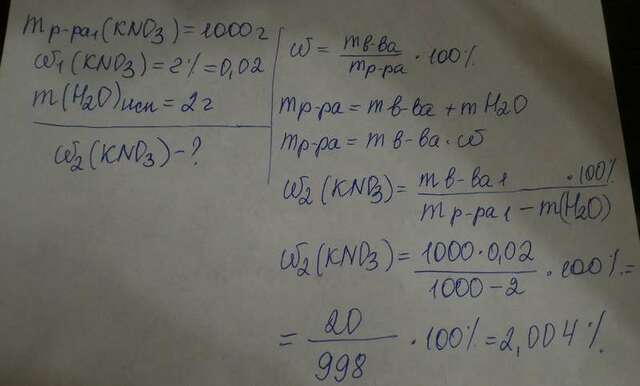 mр-ра₁(KNO3)=1000г
ω₁(KNO3)=2%=0,02
m(H2O)исп=2г
ω₂(KNO3)-?
ω = mв-ва/mр-ра · 100%
mр-ра = mв-ва + mH2O
mр-ра = mв-ва · ω
ω₂(KNO3) = mв-ва₁ · 100% / mр-ра₁ - m(H2O)
ω₂(KNO3) = 1000·0,02 / 1000-2 · 100% =
= 20/998 · 100% = 2,004%